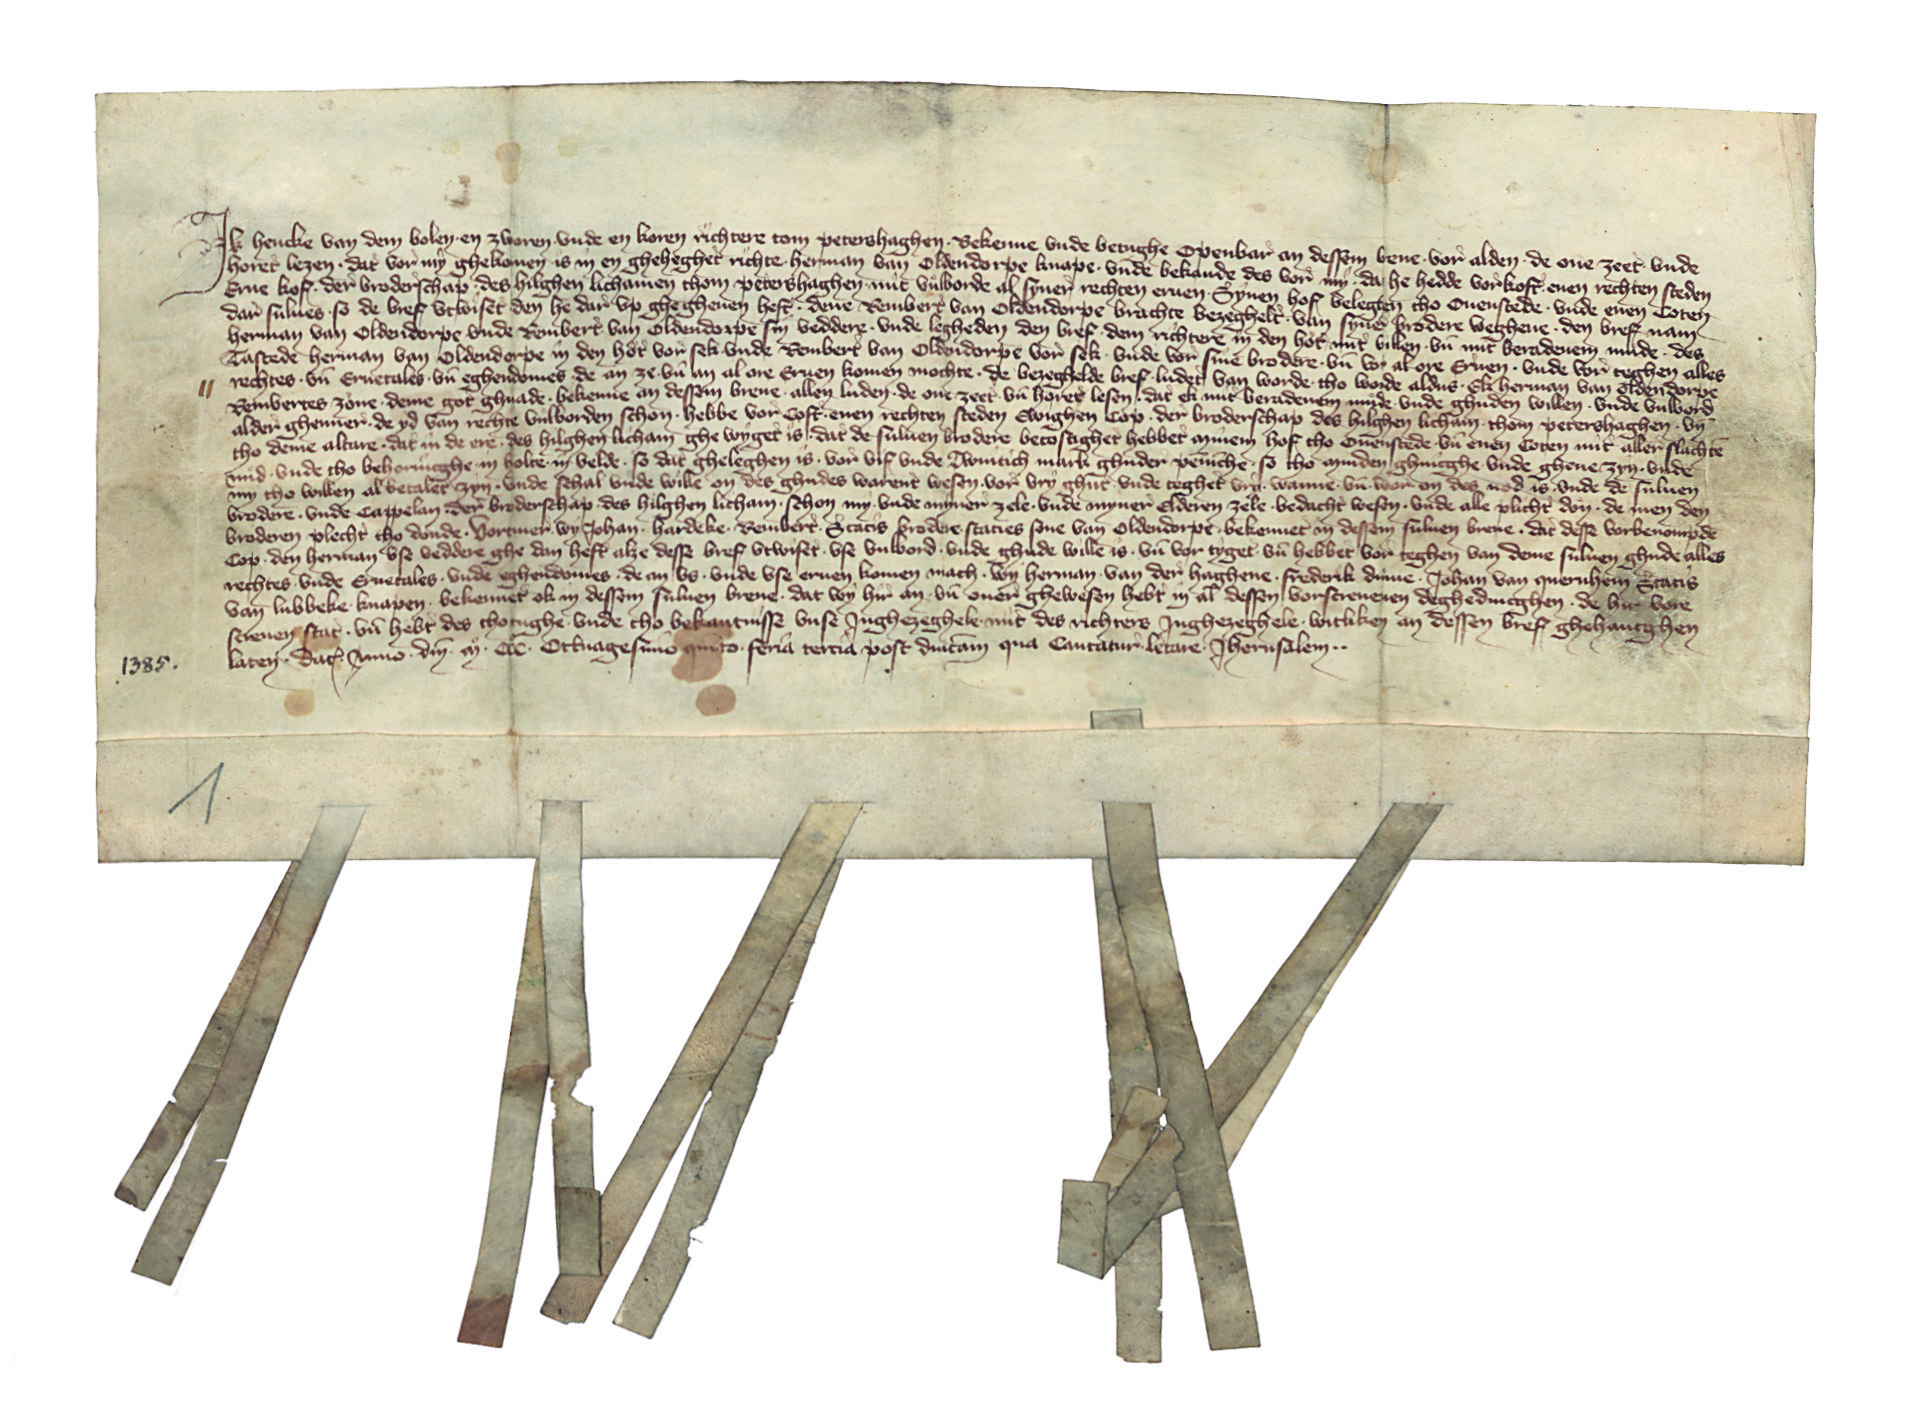 Ik hencke van dem bolen · en zworen · vnde en koren richtere tom petershaghen · Bekenne vnde betughe Openbar an dessem breue · vor alden · de one zeet · vnde
horet lezen · dat vor my ghekomen is in en gheheghet richte · herman van Oldendorpe knape · vnde bekande des vor my · dat he hedde vorkoft · enen rechten steden
Erue kof · der broderschap · des hilghen lichamen thom petershaghen · mit vulborde al syner rechten eruen · Synen hof belegten tho Ouenstede · vnde enen Coten
dar sulues · so de bref vtwiset den he dar vp ghegheuen heft · deue Rembert van Oldendorpe brachte bezeghelt · van synes brodere weghene · den bref nam
herman van Oldendorpe vnde Rembert van Oldendorpe sin veddere · vnde legheden den bref · dem richtere in den hot mit willen · vn mit beradenem mude · des
Tastede herman van Oldendorpe in den hot vor sek · vnde Rembert van Oldendorpe vor sek · vnde vor sine brodere · vn vor al ore Eruen · vnde vor teghen alles
rechtes · vn Eruetales · vn eghendomes · de an ze · vn an al ore Eruen komen mochte · de bezeghelde bref · ludet van worde · tho worde aldus · Ek herman van Oldendorpe
Rembertes zone · deme got ghnade · bekenne an dessem breue · allen luden · de one zeet · vn horet lesen · dat ek mit beradenem mude · vnde ghuden willen · vnde vulbord
alder ghenner · de yd van rechte vulborden schon · hebbe vor Coft · enen rechten steden Ewighen Cop · der broderschap des hilghen licham · thom petershaghen · vn
tho deme altare · dat in de ere · des hilghen licham ghe wyget is · dat de suluen brodere betostighet hebbet mynem hof tho Ouenstede · vn enen Coten mit aller slachte
nud · vnde tho behoringhe · in holte · in velde · so dat gheleghen is · vor vif vnde Twintich mark ghuder penninche · so tho mynden ghinghe · vnde gheue zyn · vnde
my tho willen al betalet zyn · vnde schal vnde wille on des ghudes warent wesen · vor vry ghut · vnde teghet vry · wanne · vn wor on des nod is · vnde de suluen
brodere · vnde Cappelan · der broderschap · des hilghen licham · schon my · vnde myner zele · vnde myner Elderen zele · bedacht wesen · vnde alle plicht don · de men den
broderen plecht tho donde · Vortmer · wy Johan · hardeke · Rembert · Statis brodere · staties sone van Oldendorpe · bekennet in dessem suluen breue · dat desse vorbenompde
Cop · den herman vse veddere ghe dan heft alze desse bref vtwiset · vse vulbord · vnde ghude wille is · vn vor tyget · vn hebbet vor teghen van deme suluen ghude alles
rechtes vnde Eruetales · vnde eghendomes · de an vs · vnde vse eruen komen mach · Wy herman · van der haghene · frederik dume · Johan van quernhem Statis
van lubbeke · knapen · bekennet ok in dessem suluen breue · dat wy hir an · vn ouer ghewesen hebt in al dessen vorscreuenen deghedinghen · de hir vore
screuen stat · vn hebt des thotughe · vnde tho bekantnisse vnse Inghezeghele · mit des richters Inghezeghele · witliken an dessen bref ghehancghen
laten · Dat · Anno · dni · m · ccc · Octuagesimo quinto · feria tercia post dnicam qua Cantatur · letare · Jherusalem ··
1385.
1